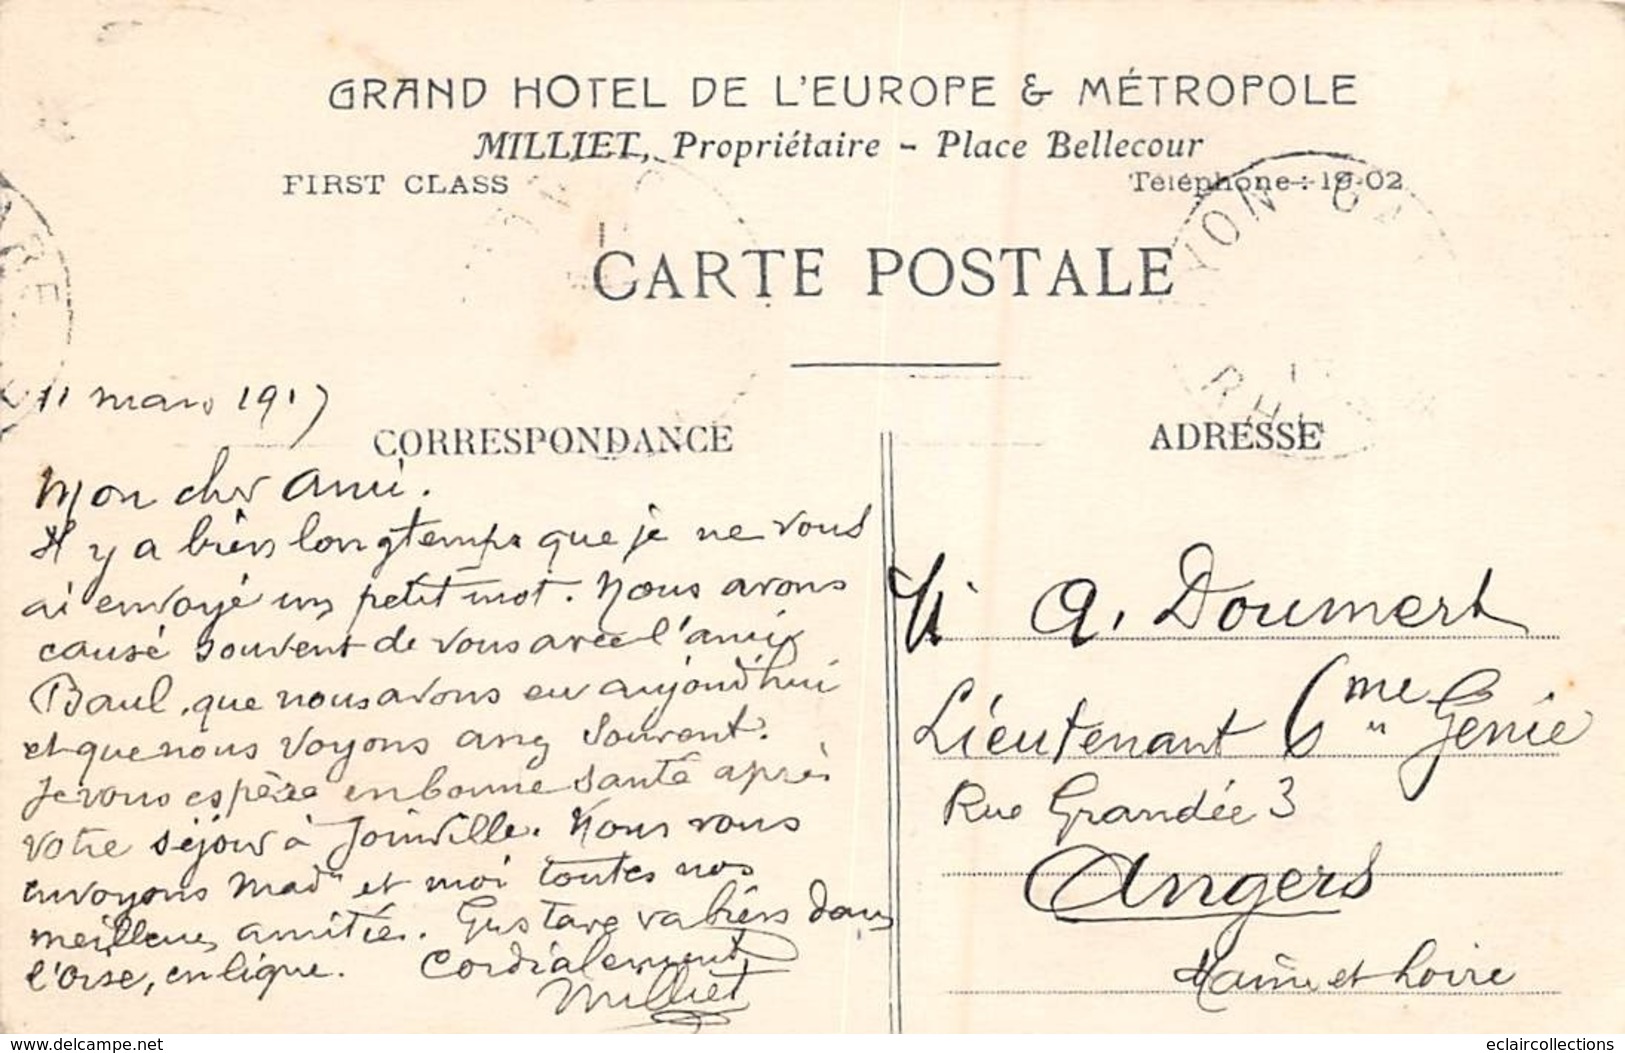 GRAND HOTEL DE L'EUROPE & MÉTROPOLE
MILLIET, Propriétaire - Place Bellecour
FIRST CLASS
Téléphone : 19-02
CARTE POSTALE
11 mars 1917
CORRESPONDANCE
ADRESSE
Mon cher Ami.
Il y a bien longtemps que je ne vous
ai envoyé un petit mot. Nous avons
causé souvent de vous avec l'ami
Baul, que nous avons eu aujourd'hui
et que nous voyons assez souvent.
Je vous espère en bonne santé après
votre séjour à Joinville. Nous vous
envoyons Mad et moi toutes nos
meilleures amitiés. Gustave va bien dans
l'Oise, en ligne. Cordialement
Milliet
A. Doumert
Lieutenant 6me Genie
Rue Grandée 3
Angers
Maine et Loire
YON GA
RH
ARE
eclaircollections